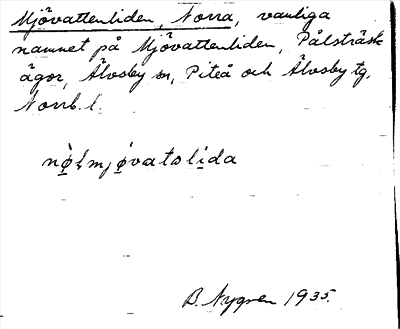 Mjövattenliden, Norra, vanliga
namnet på Mjövattenliden, Pålsträsk
ägor, Älvsby sn, Piteå och Älvsby tg,
Norrb. l.
mjọ́vatəlịda
B. Nygren 1935.